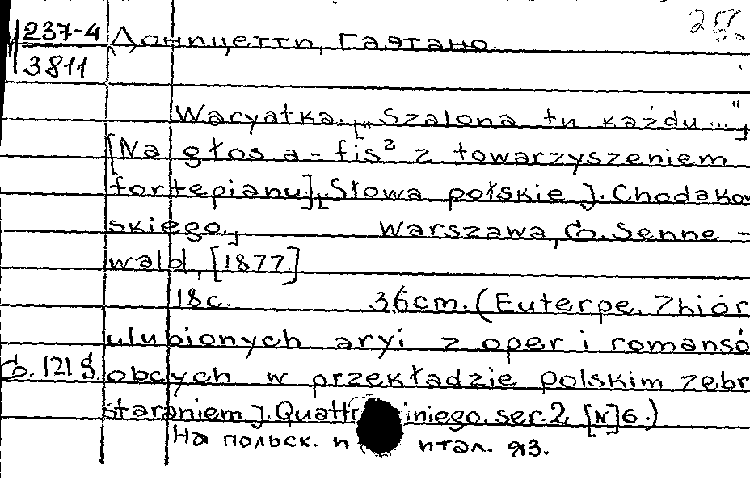 237-4 Доницетти, Гаэтано
3811
Waryatka. [„Szalona tu każdu..."]
[Na głos a - fis² z towarzyszeniem
fortepianu]. [Słowa polskie J. Chodako-
skiego.] Warszawa, G. Senne-
wald, [1877]
18c. 36cm. (Euterpe. Zbiór
ulubionych aryi z oper i romansó
G. 121 S. obcych w przekładzie polskim zebr
staraniem J. Quattr iniego. ser. 2. [N] 6.)
На польск. и итал. яз.